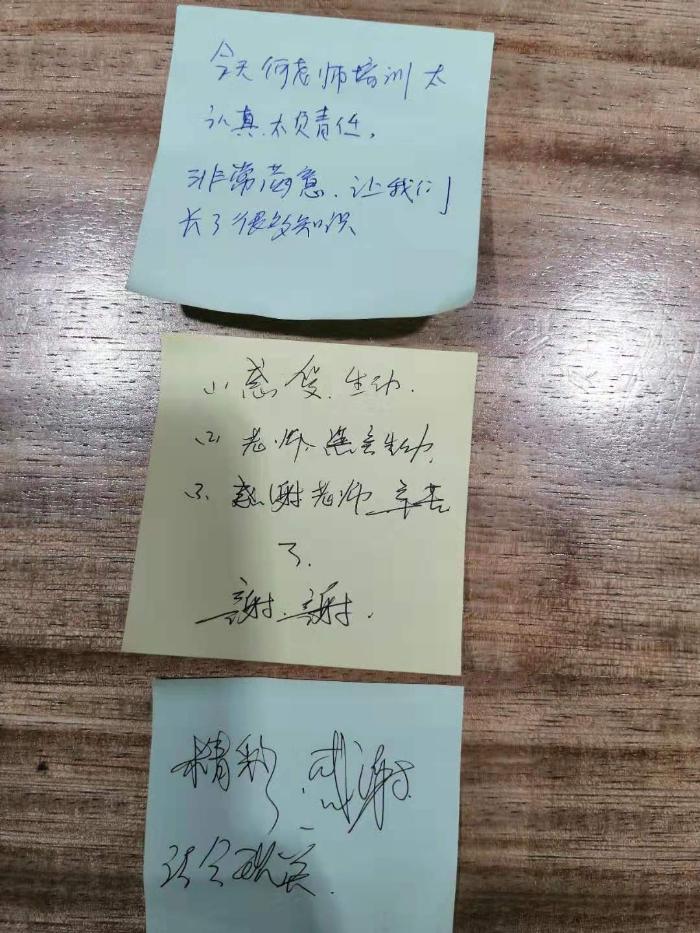 今天何老师培训太
认真.太负责任,
非常满意.让我们
长了很多知识
(1)感 生动.
(2)老师 生动.
3.感谢老师辛苦
了.
谢谢.
精彩.感谢